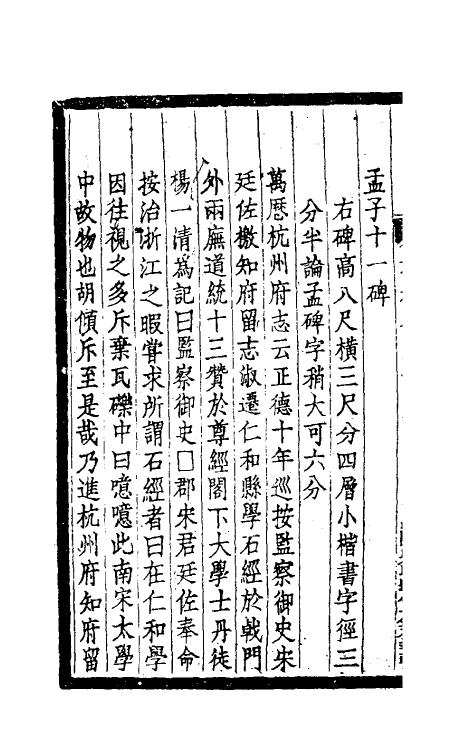 孟子十一碑
右碑高八尺橫三尺分四層小楷書字徑三
分半論孟碑字稍大可六分
萬厯杭州府志云正德十年巡按監察御史宋
廷佐檄知府留志淑遷仁和縣學石經於戟門
外兩廡道統十三贊於尊經閣下大學士丹徒
楊一清爲記曰監察御史□郡宋君廷佐奉命
按治浙江之暇甞求所謂石經者曰在仁和學
因往視之多斥棄瓦礫中曰噫噫此南宋太學
中故物也胡傾斥至是哉乃進杭州府知府留